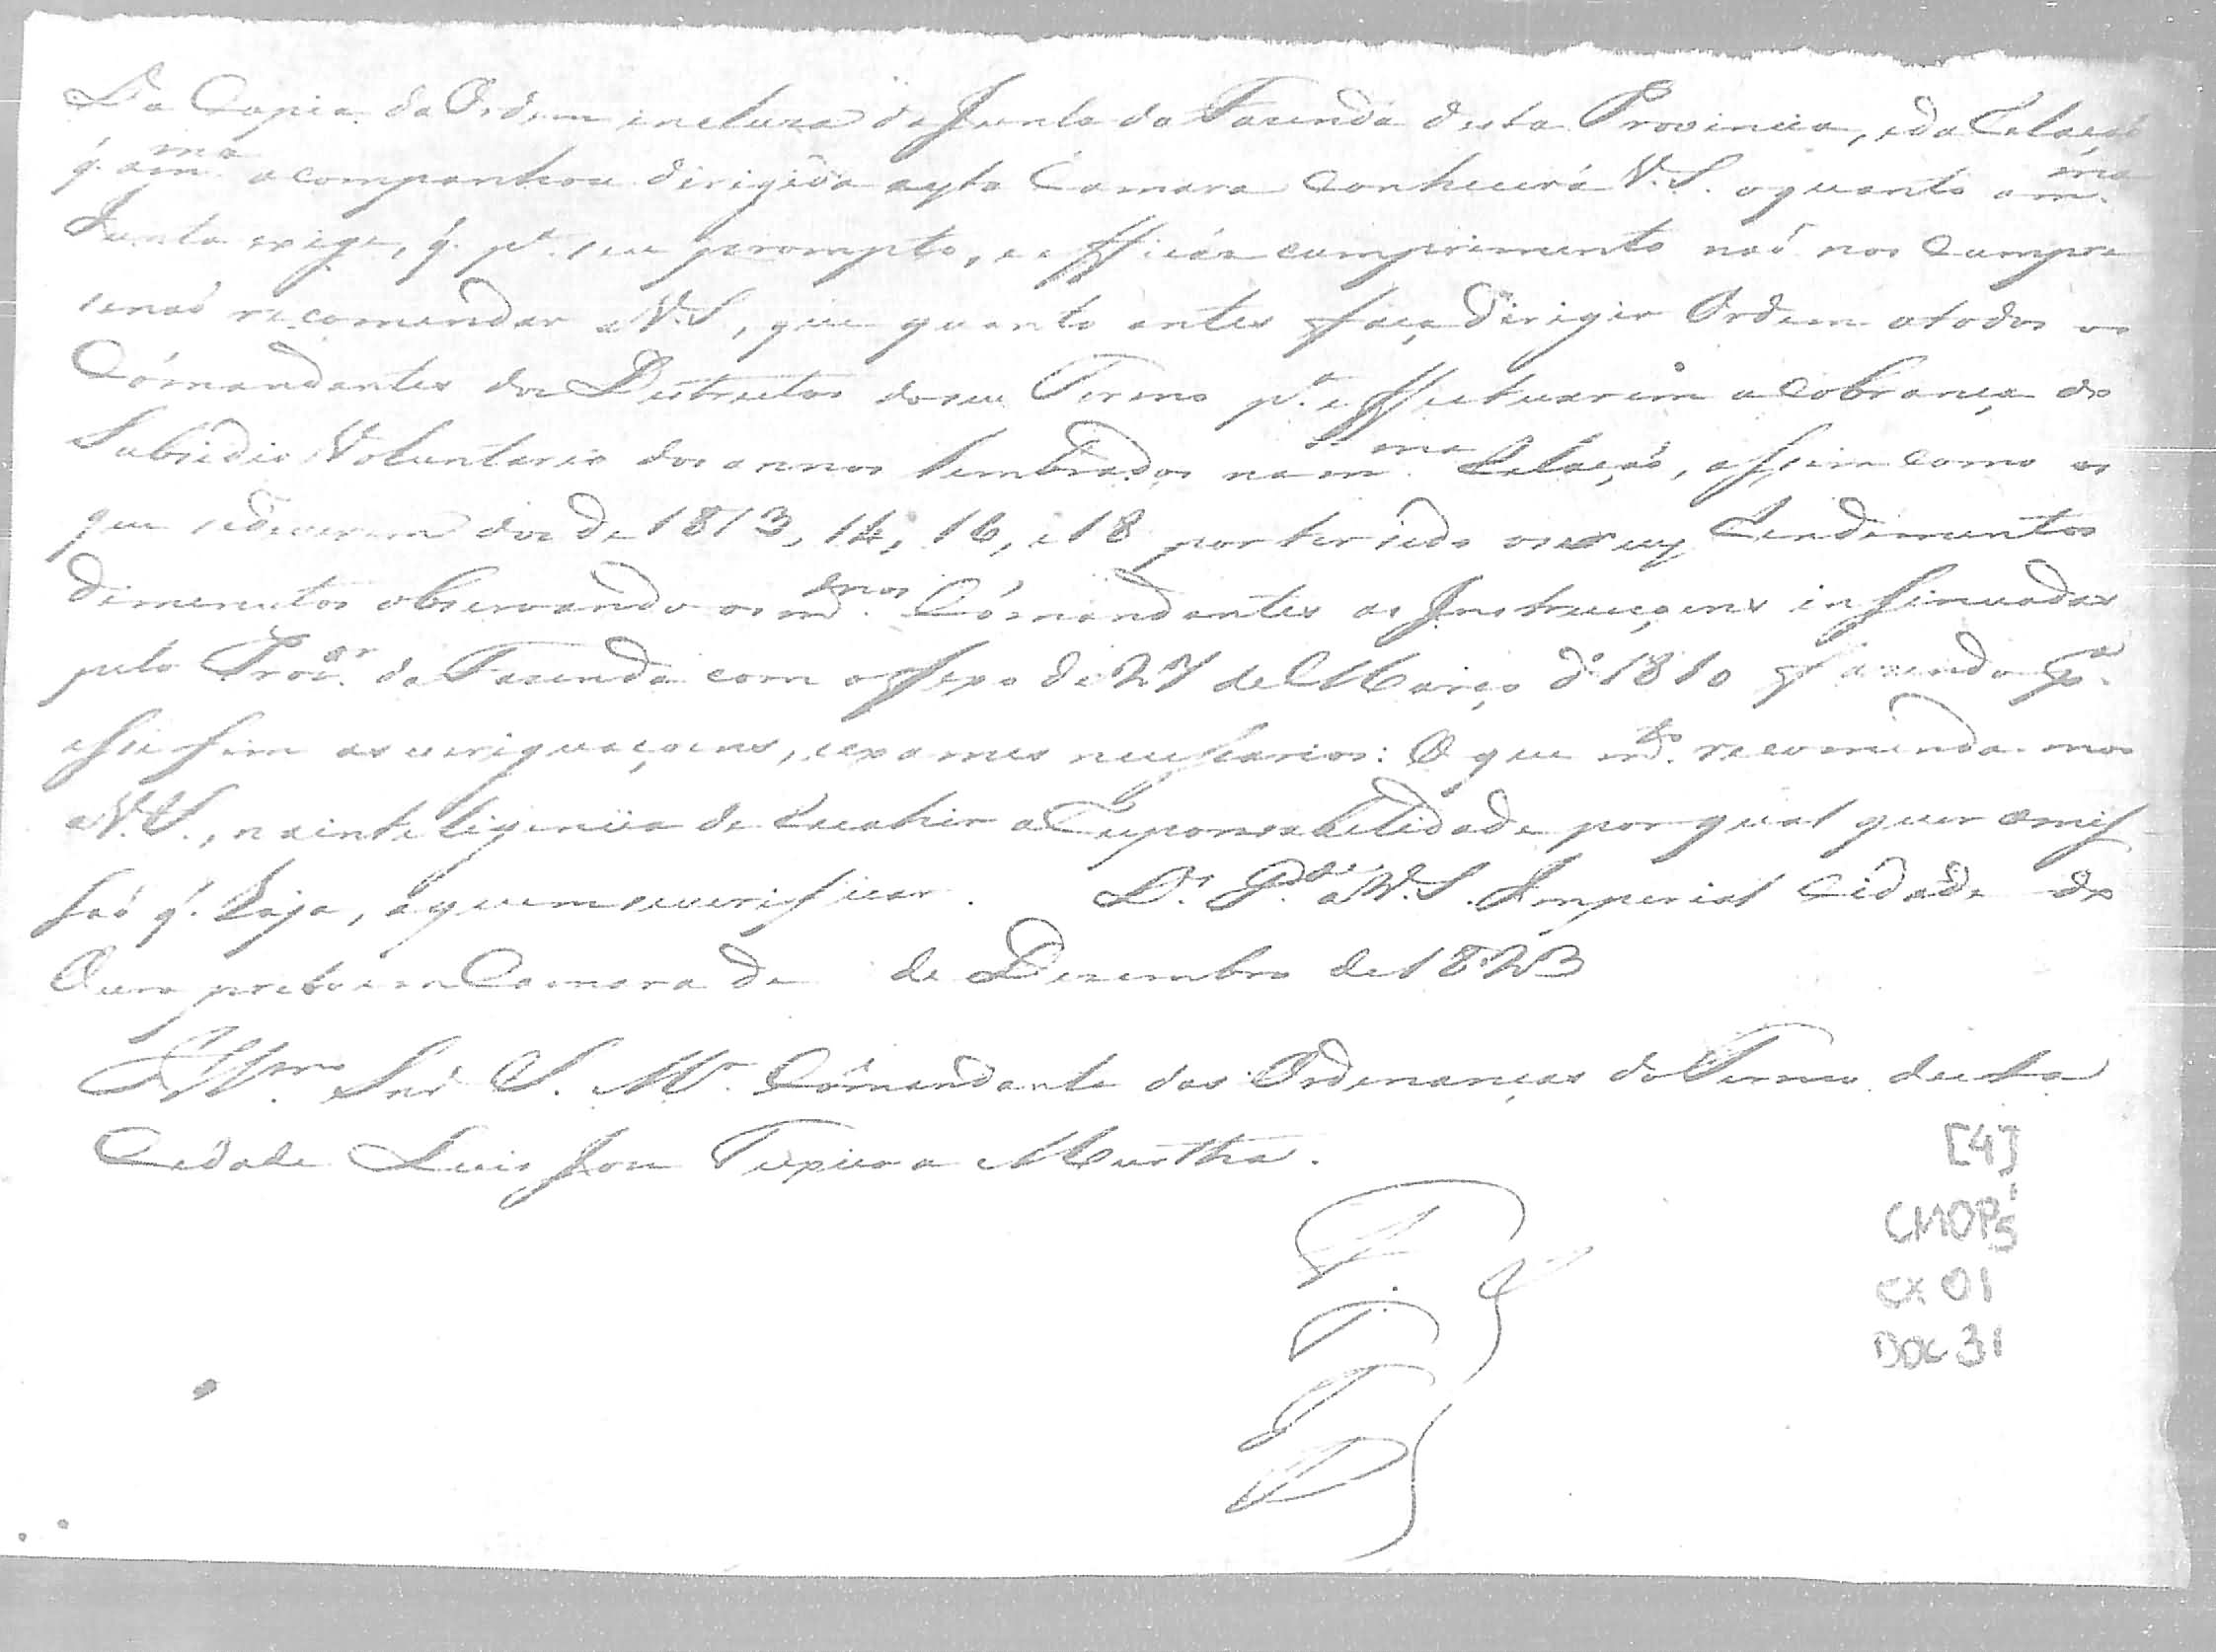 Da Copia da Ordem incluza da Junta da Fazenda desta Provincia, e da Relação
q. a m.ma acompanhou dirigida a esta Camara conhecerá V.S. o quanto a m.ma
Junta exige, q. p.a seu prompto, e efficáz cumprimento naõ nos cumpre
senaõ recomendar a V.S., que quanto antes faça dirigir Ordem a todos os
Cómandantes dos Destrictos do seu Termo p.a effectuarem a Cobrança do
Subsidio Voluntario dos annos lembrados na m.ma Relaçaõ, assim como os
que se deverem dos de 1813, 14, 16, e 18 por ter sido os seus Rendimentos
observando os m.dnos Cómandantes as Instrucçoens insinuadas
pelo Proc.or da Fazenda com o de 27 de Março d.e 1810 fazendo p.a
esse fim as veriguaçoens, e exames necessarios: O que m.do recomenda-mos
a V.S., na inteligencia de recahir a Responsabilidade por qual quer omis-
saõ q. haja, a quem se verificar. D.s G.de a V.S. Imperial Cidade do
Ouro preto em Camara de de Dezembro de 1823
Ill.mo Snr S. M.r Cómandante das Ordenanças do Termo desta
Cidade Luis Jose Teixeira Murtha.
[4]
CMOP5
CX 01
DOC 31